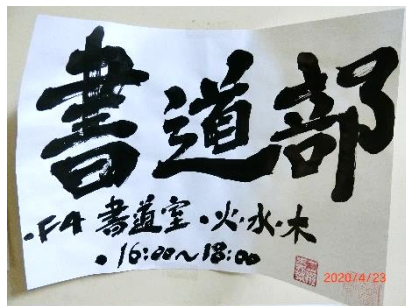 書道部
・F4 書道室 ・火・水・木
・16:00～18:00
2020/4/23